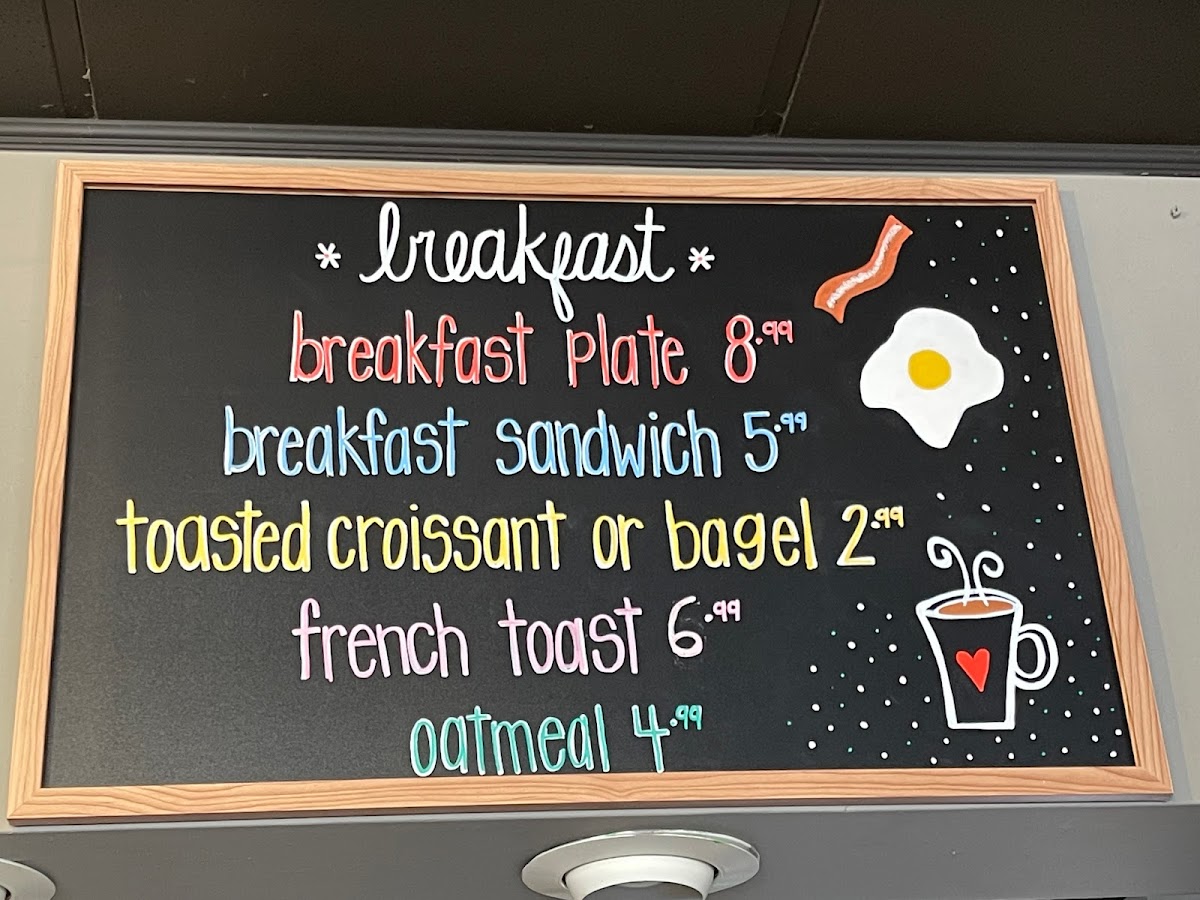 * breakfast *
breakfast plate 8.99
breakfast sandwich 5.99
toasted croissant or bagel 2.99
french toast 6.99
oatmeal 4.99